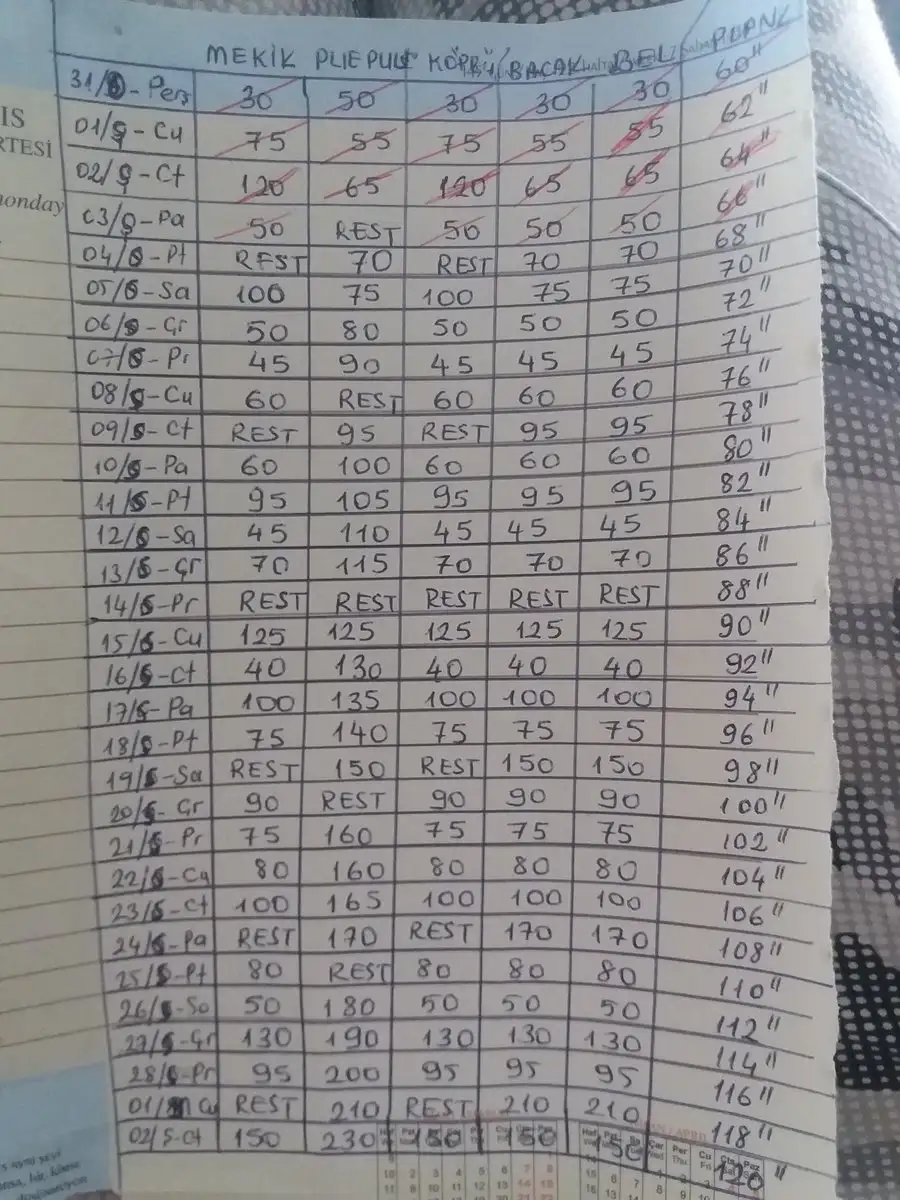 MEKİK PLIEPULS KÖPRÜ BACAK BEL PLANK
31/8-Perş 30 50 30 30 30 60"
01/9-Cu 75 55 75 55 55 62"
02/9-Ct 120 65 120 65 65 64"
03/9-Pa 50 REST 50 50 50 66"
04/8-Pt REST 70 REST 70 70 68"
05/8-Sa 100 75 100 75 75 70"
06/8-Çr 50 80 50 50 50 72"
07/8-Pr 45 90 45 45 45 74"
08/9-Cu 60 REST 60 60 60 76"
09/8-Ct REST 95 REST 95 95 78"
10/8-Pa 60 100 60 60 60 80"
11/8-Pt 95 105 95 95 95 82"
12/8-Sa 45 110 45 45 45 84"
13/8-Çr 70 115 70 70 70 86"
14/8-Pr REST REST REST REST REST 88"
15/8-Cu 125 125 125 125 125 90"
16/8-Ct 40 130 40 40 40 92"
17/8-Pa 100 135 100 100 100 94"
18/8-Pt 75 140 75 75 75 96"
19/8-Sa REST 150 REST 150 150 98"
20/8-Çr 90 REST 90 90 90 100"
21/8-Pr 75 160 75 75 75 102"
22/8-Cu 80 160 80 80 80 104"
23/8-Ct 100 165 100 100 100 106"
24/8-Pa REST 170 REST 170 170 108"
25/8-Pt 80 REST 80 80 80 110"
26/8-Sa 50 180 50 50 50 112"
27/8-Çr 130 190 130 130 130 114"
28/8-Pr 95 200 95 95 95 116"
01/ Cu REST 210 REST 210 210 118"
02/5-Ct 150 230 150 150 150 120"
IS
RTESİ
monday